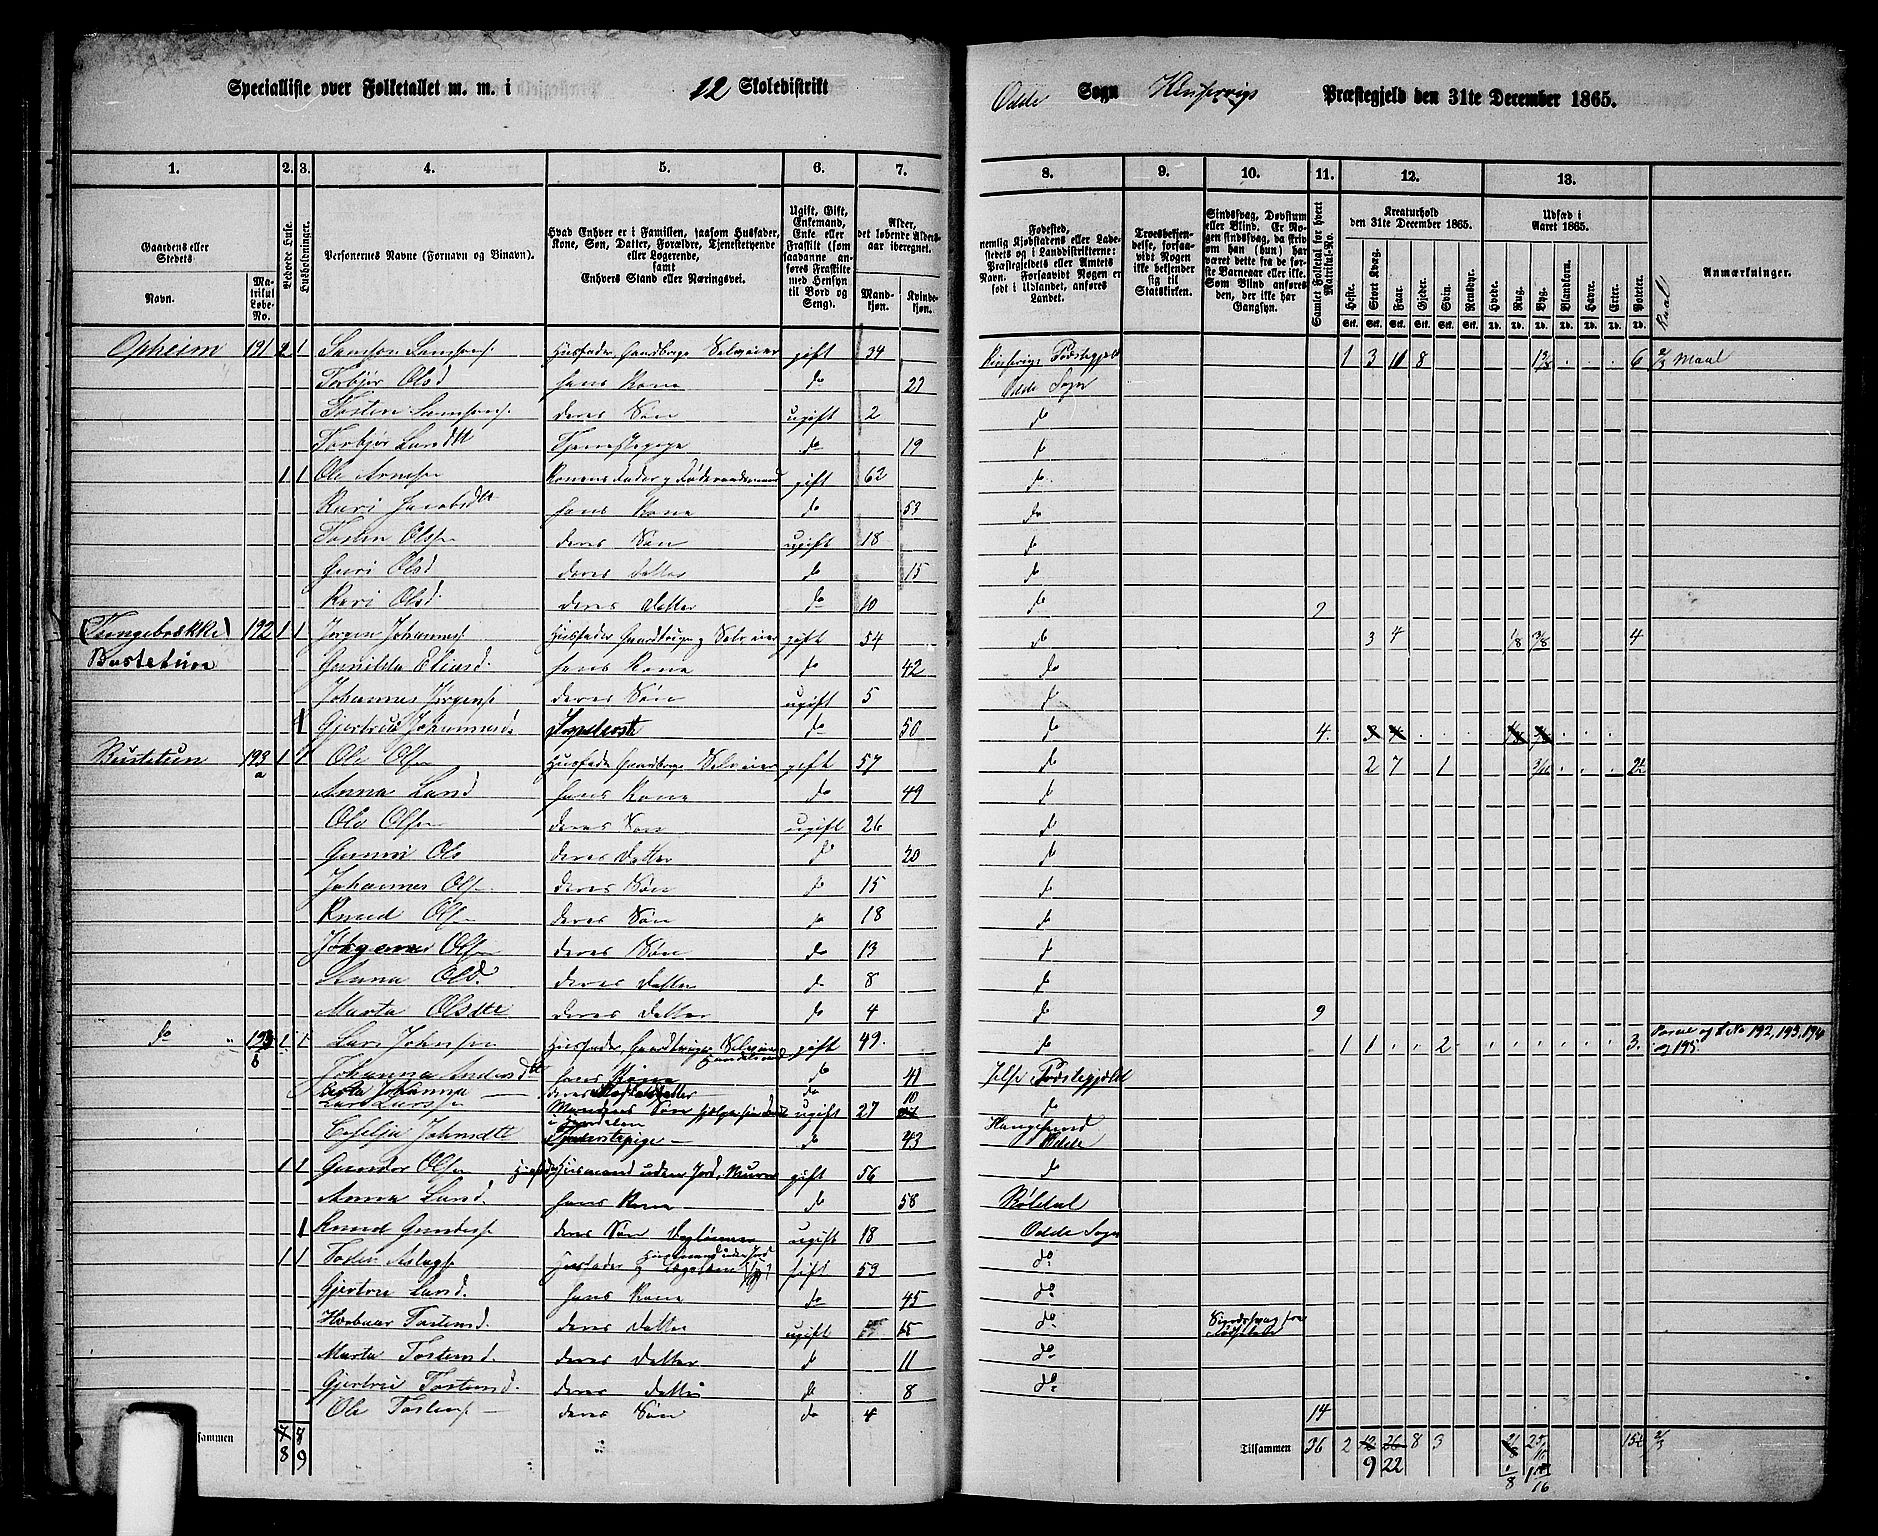 Specialliste over Folketallet m. m. i 12 Skoledistrikt Odde Sogn Kinservigs Præstegjeld den 31te December 1865.
1. 2. 3. 4. 5. 6. 7. 8. 9. 10. 11. 12. 13.
Gaardens eller Stedets Navn. Matrikul Løbe-No. Beboede Huse. Husholdninger.
Personernes Navne (Fornavn og Binavn).
Hvad Enhver er i Familien, saasom Husfader, Kone, Søn, Datter, Forældre, Tjenestetyende eller Logerende, samt Enhvers Stand eller Næringsvei.
Ugift, Gift, Enkemand, Enke eller Fraskilt (som saadanne anføres Fraskilte med Hensyn til Bord og Seng).
Alder, det løbende Aldersaar iberegnet. Mandkjøn. Kvindekjøn.
Fødested, nemlig Kjøbstadens eller Ladestedets og i Landdistrikterne: Præstegjeldets eller Amtets Navn. Forsaavidt Nogen er født i Udlandet, anføres Landet.
Troesbekjendelse, forsaavidt Nogen ikke bekjender sig til Statskirken.
Sindssvag, Døvstum eller Blind. Er Nogen sindssvag, da skrives om han (hun) har været dette fra de første Barneaar eller ikke. Som Blind anføres den, der ikke har Gangsyn.
Samlet Folketal for hvert Matrikul-No.
Kreaturhold den 31te December 1865. Heste. Stort Kvæg. Faar. Gjeder. Svin. Rensdyr.
Udsæd i Aaret 1865. Hvede. Rug. Byg. Blandkorn. Havre. Erter. Poteter.
Anmærkninger.
Opheim 191 2 1 Samson Samsons. Husfader Gaardbruger Selveier gift 34 Kinservigs Præstegjeld 1 3 11 8 6 2/3 Maal
Torbjør Olsd hans Kone do 22 Odde Sogn
Tosten Samsons. deres Søn ugift 2 do
Torbjør Larsdtt Tjenestepige do 19 do
1 1 Ole Arnesen Konens Fader Føderaadsmand gift 62 do
Kari Jacobsdtt hans Kone do 53 do
Tosten Olsen deres Søn ugift 18 do
Guri Olsd deres Datter do 15 do
Kari Olsd. deres Datter do 10 do 9
192 1 1 Jørgen Johannesd Husfader Gaardbruger Selveier gift 54 do 3 4 1/8 3/8 4
Bustetun hans Kone do 42 do
Johannes Jørgens. deres Søn ugift 5 do
1 Gjertrud Johannesd. Inderste do 50 do 4.
Bustetun 193 a 1 1 Ole Olsen Husfader Gaardbruger Selveier gift 57 do 2 7 1
Anna Larsd hans Kone do 49 do
Ole Olsen deres Søn ugift 26 do
Gunni Ols deres Datter do 20 do
Johannes Olsen deres Søn do 15 do
Knud Olsen deres Søn do 18 do
Olsen deres Søn do 13 do
Anna Olsd. deres Datter do 8 do
Marta Olsdtt deres Datter do 4 do 9
do 193 b 1 1 Lars Johnsen Husfader, Gaardbruger Selveier Handelsmand gift 49. do 1 1 2 3. No 192, 193, 194 og 195
Johanna Andersdtt hans Kone do 41 Præstegjeld
Johanna do 10 do
Lars Larsen Mandens Søn ugift 27 Haugesund
Johnsdtt Tjenestepige do 43 Odde
1 1 Gunder Olsen Husmand uden Jord, Murer gift 56 do
Anna Larsd. hans Kone do 58 Røldal
1 Knud Gunders. deres Søn ugift 18 Odde Sogn
1 1 Tosten Aslags. Husfader Husmand uden Jord gift 59 do
Gjertrue Larsd. hans Kone do 45 do
Tostensd. deres Datter ugift 15 do Sindssvag fra
Marta Tostensd. deres Datter do 11 do
Gjertrue Tostensd. deres Datter do 8 do
Ole Tostens. deres Søn do 4 14
sammen 8 9 Tilsammen 36 2 12 26 8 3 15½ 2/3
9 22 1/8